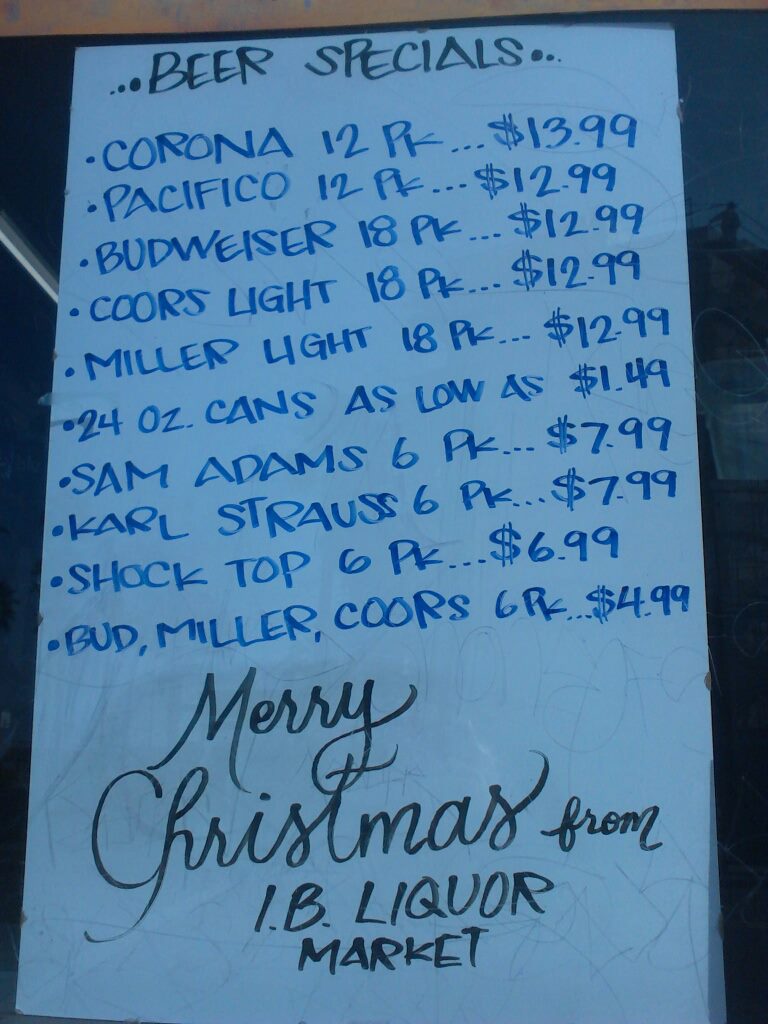 ...BEER SPECIALS...
•CORONA 12 PK...$13.99
•PACIFICO 12 PK...$12.99
•BUDWEISER 18 PK...$12.99
•COORS LIGHT 18 PK...$12.99
•MILLER LIGHT 18 PK...$12.99
•24 OZ. CANS AS LOW AS $1.49
•SAM ADAMS 6 PK...$7.99
•KARL STRAUSS 6 PK...$7.99
•SHOCK TOP 6 PK...$6.99
•BUD, MILLER, COORS 6PK...$4.99
Merry
Christmas from
I.B. LIQUOR
MARKET